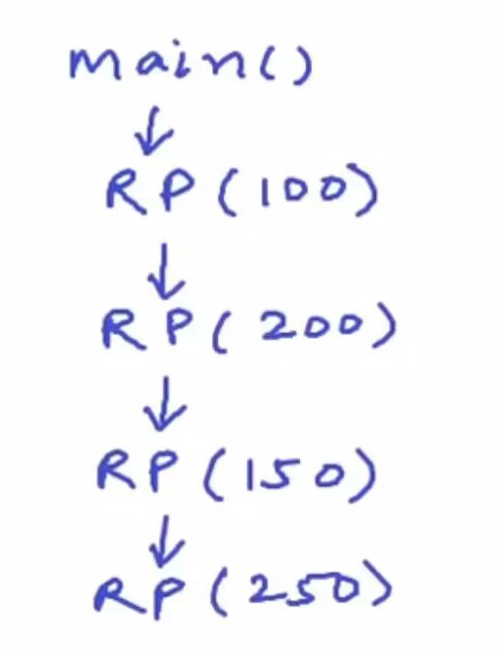 main()
↓
RP(100)
↓
RP(200)
↓
RP(150)
↓
RP(250)